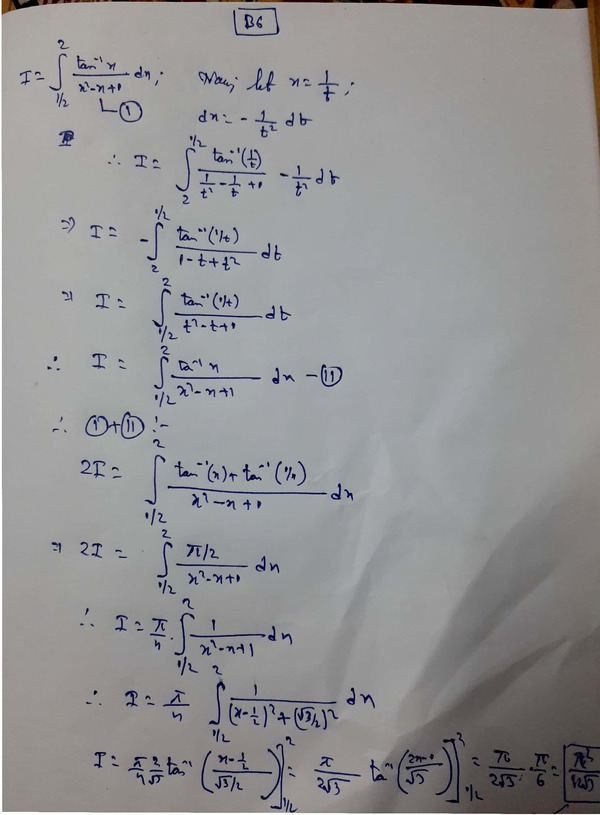 B6
I = ∫_{1/2}^{2} tan⁻¹x / (x²-x+1) dx; Now, let x = 1/t;
— ①
dx = -1/t² dt
∴ I = ∫_{2}^{1/2} tan⁻¹(1/t) / (1/t² - 1/t + 1) · -1/t² dt
⇒ I = -∫_{2}^{1/2} tan⁻¹(1/t) / (1-t+t²) dt
⇒ I = ∫_{1/2}^{2} tan⁻¹(1/t) / (t²-t+1) dt
∴ I = ∫_{1/2}^{2} tan⁻¹x / (x²-x+1) dx — ⑪
∴ ① + ⑪ :-
2I = ∫_{1/2}^{2} (tan⁻¹(x) + tan⁻¹(1/x)) / (x²-x+1) dx
⇒ 2I = ∫_{1/2}^{2} (π/2) / (x²-x+1) dx
∴ I = π/4 · ∫_{1/2}^{2} 1 / (x²-x+1) dx
∴ I = π/4 ∫_{1/2}^{2} 1 / ((x-1/2)² + (√3/2)²) dx
I = π/4 · 2/√3 tan⁻¹((x-1/2) / (√3/2))]_{1/2}^{2} = π/(2√3) tan⁻¹((2x-1)/√3)]_{1/2}^{2} = π/(2√3) · π/6 =